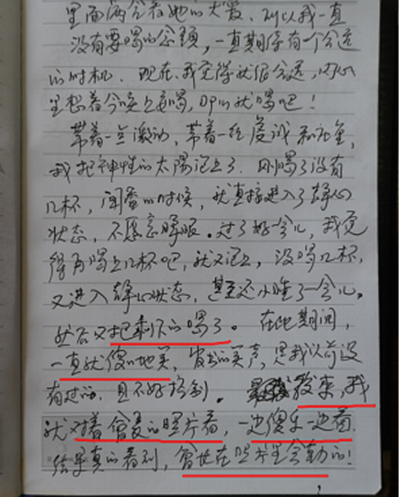 里面两命在她的大器，所以我一直
没有要喝的念头，一直期待有一个合适
的时机。现在，我觉得就很合适，内心
里想着今晚上要喝，那就喝吧！
带着一点激动，带着一丝虔诚和
我把神性的太阳泡上了。刚喝了没有
几杯，闻香的时候，就直接进入了静心
状态，不愿意睁眼。过了好一会儿，我觉
得再喝上几杯吧，就又泡上，没喝几杯，
又进入静心状态，甚至还小睡了一会儿。
然后又把剩下的喝了。在此期间，
一直就傻傻地笑，发出的笑声，是我以前没
有过的，且不好控制。后来，我
就对着曾良的照片看，一边傻乐一边看
结果真的看到，曾他在照片里会动的！